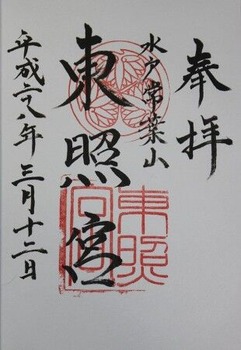 奉拝
水戸常葉山
東照宮
東照宮
平成二八年三月十二日